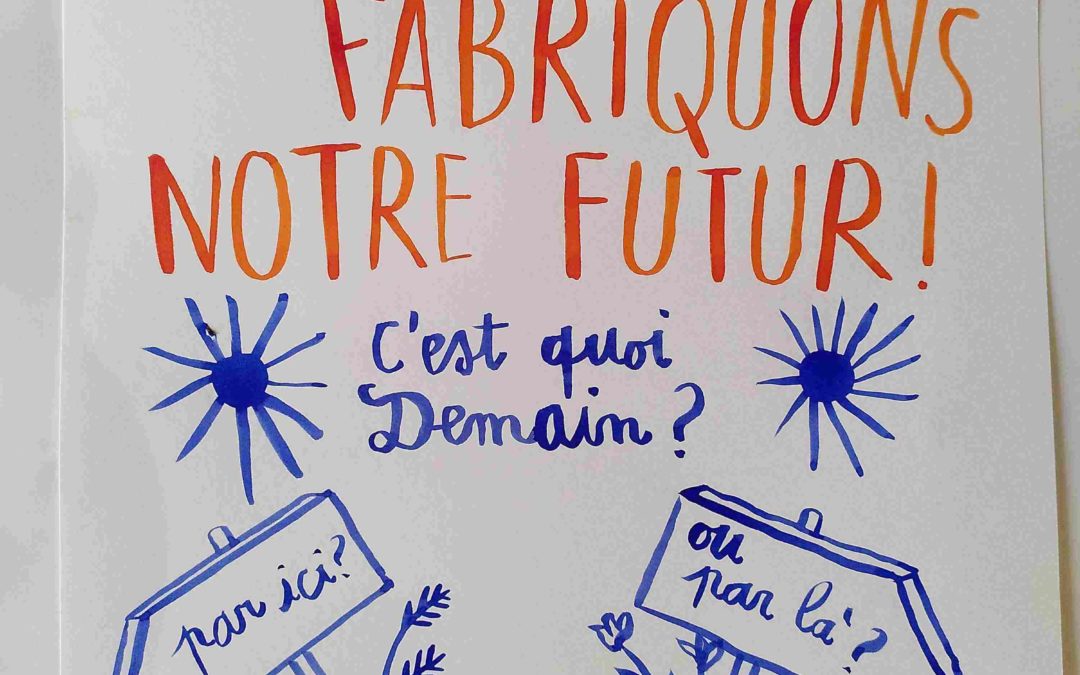 FABRIQUONS
NOTRE FUTUR !
C'est quoi
Demain ?
par ici ?
ou
par là ?